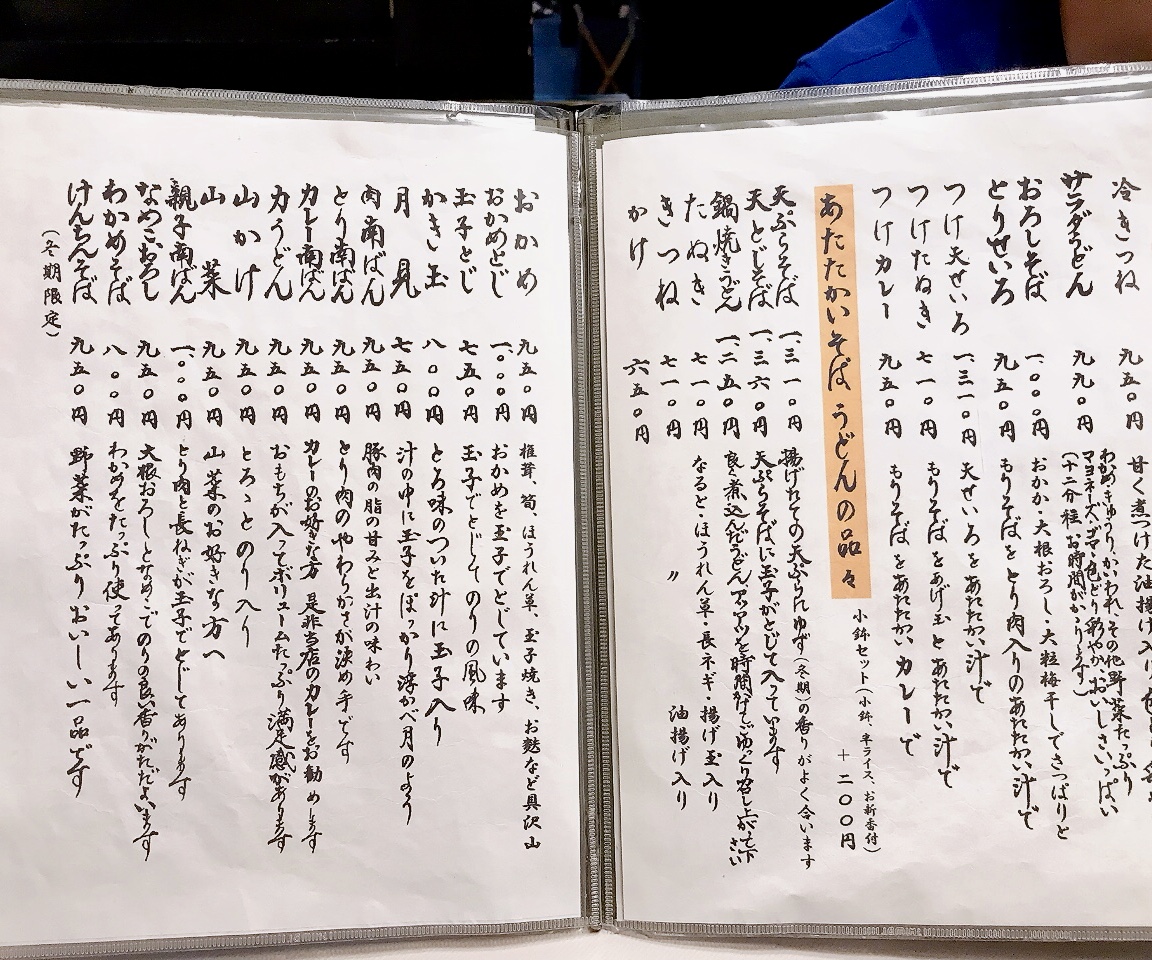 冷きつね 九五〇円 甘く煮つけた油揚げ入り
サラダうどん 九九〇円 わかめ、きゅうり、かいわれ、その他野菜たっぷり
マヨネーズ、ゴマ、色どり彩やか、おいしさいっぱい
(十二分程、お時間がかゝります)
おろしそば 一、〇〇〇円 おかか・大根おろし・大粒梅干しでさっぱりと
とりせいろ 九五〇円 もりそばをとり肉入りのあたたかい汁で
つけ天せいろ 一、三一〇円 天せいろをあたたかい汁で
つけたぬき 七一〇円 もりそばをあげ玉とあたたかい汁で
つけカレー 九五〇円 もりそばをあたたかいカレーで
あたたかいそばうどんの品々
小鉢セット(小鉢、半ライス、お新香付)
+二〇〇円
天ぷらそば 一、三一〇円 揚げたての天ぷらにゆず(冬期)の香りがよく合います
天とじそば 一、三六〇円 天ぷらそばに玉子がとじて入っています
鍋焼きうどん 一、二五〇円 良く煮込んだうどんアツアツを時間かけてごゆっくり召し上がって下さい
たぬき 七一〇円 なると・ほうれん草・長ネギ・揚げ玉入り
きつね 七一〇円 〃 油揚げ入り
かけ 六五〇円
おかめ 九五〇円 椎茸、筍、ほうれん草、玉子焼き、お麩など具沢山
おかめとじ 一、〇〇〇円 おかめを玉子でとじています
玉子とじ 七五〇円 玉子でとじてのりの風味
かき玉 八〇〇円 とろ味のついた汁に玉子入り
月見 七五〇円 汁の中に玉子をぽっかり浮かべ月のよう
肉南ばん 九五〇円 豚肉の脂の甘みと出汁の味わい
とり南ばん 九五〇円 とり肉のやわらかさが決め手です
カレー南ばん 九五〇円 カレーのお好きな方 是非当店のカレーをお勧めします
力うどん 九五〇円 おもちが入ってボリュームたっぷり満足感があります
山かけ 九五〇円 とろゝとのり入り
山菜 九五〇円 山菜のお好きな方へ
親子南ばん 一、〇〇〇円 とり肉と長ねぎが玉子でとじてあります
なめこおろし 九五〇円 大根おろしとなめこでのりの良い香りがただよいます
わかめそば 八〇〇円 わかめをたっぷり使ってあります
けんちんそば 九五〇円 野菜がたっぷりおいしい一品です
(冬期限定)